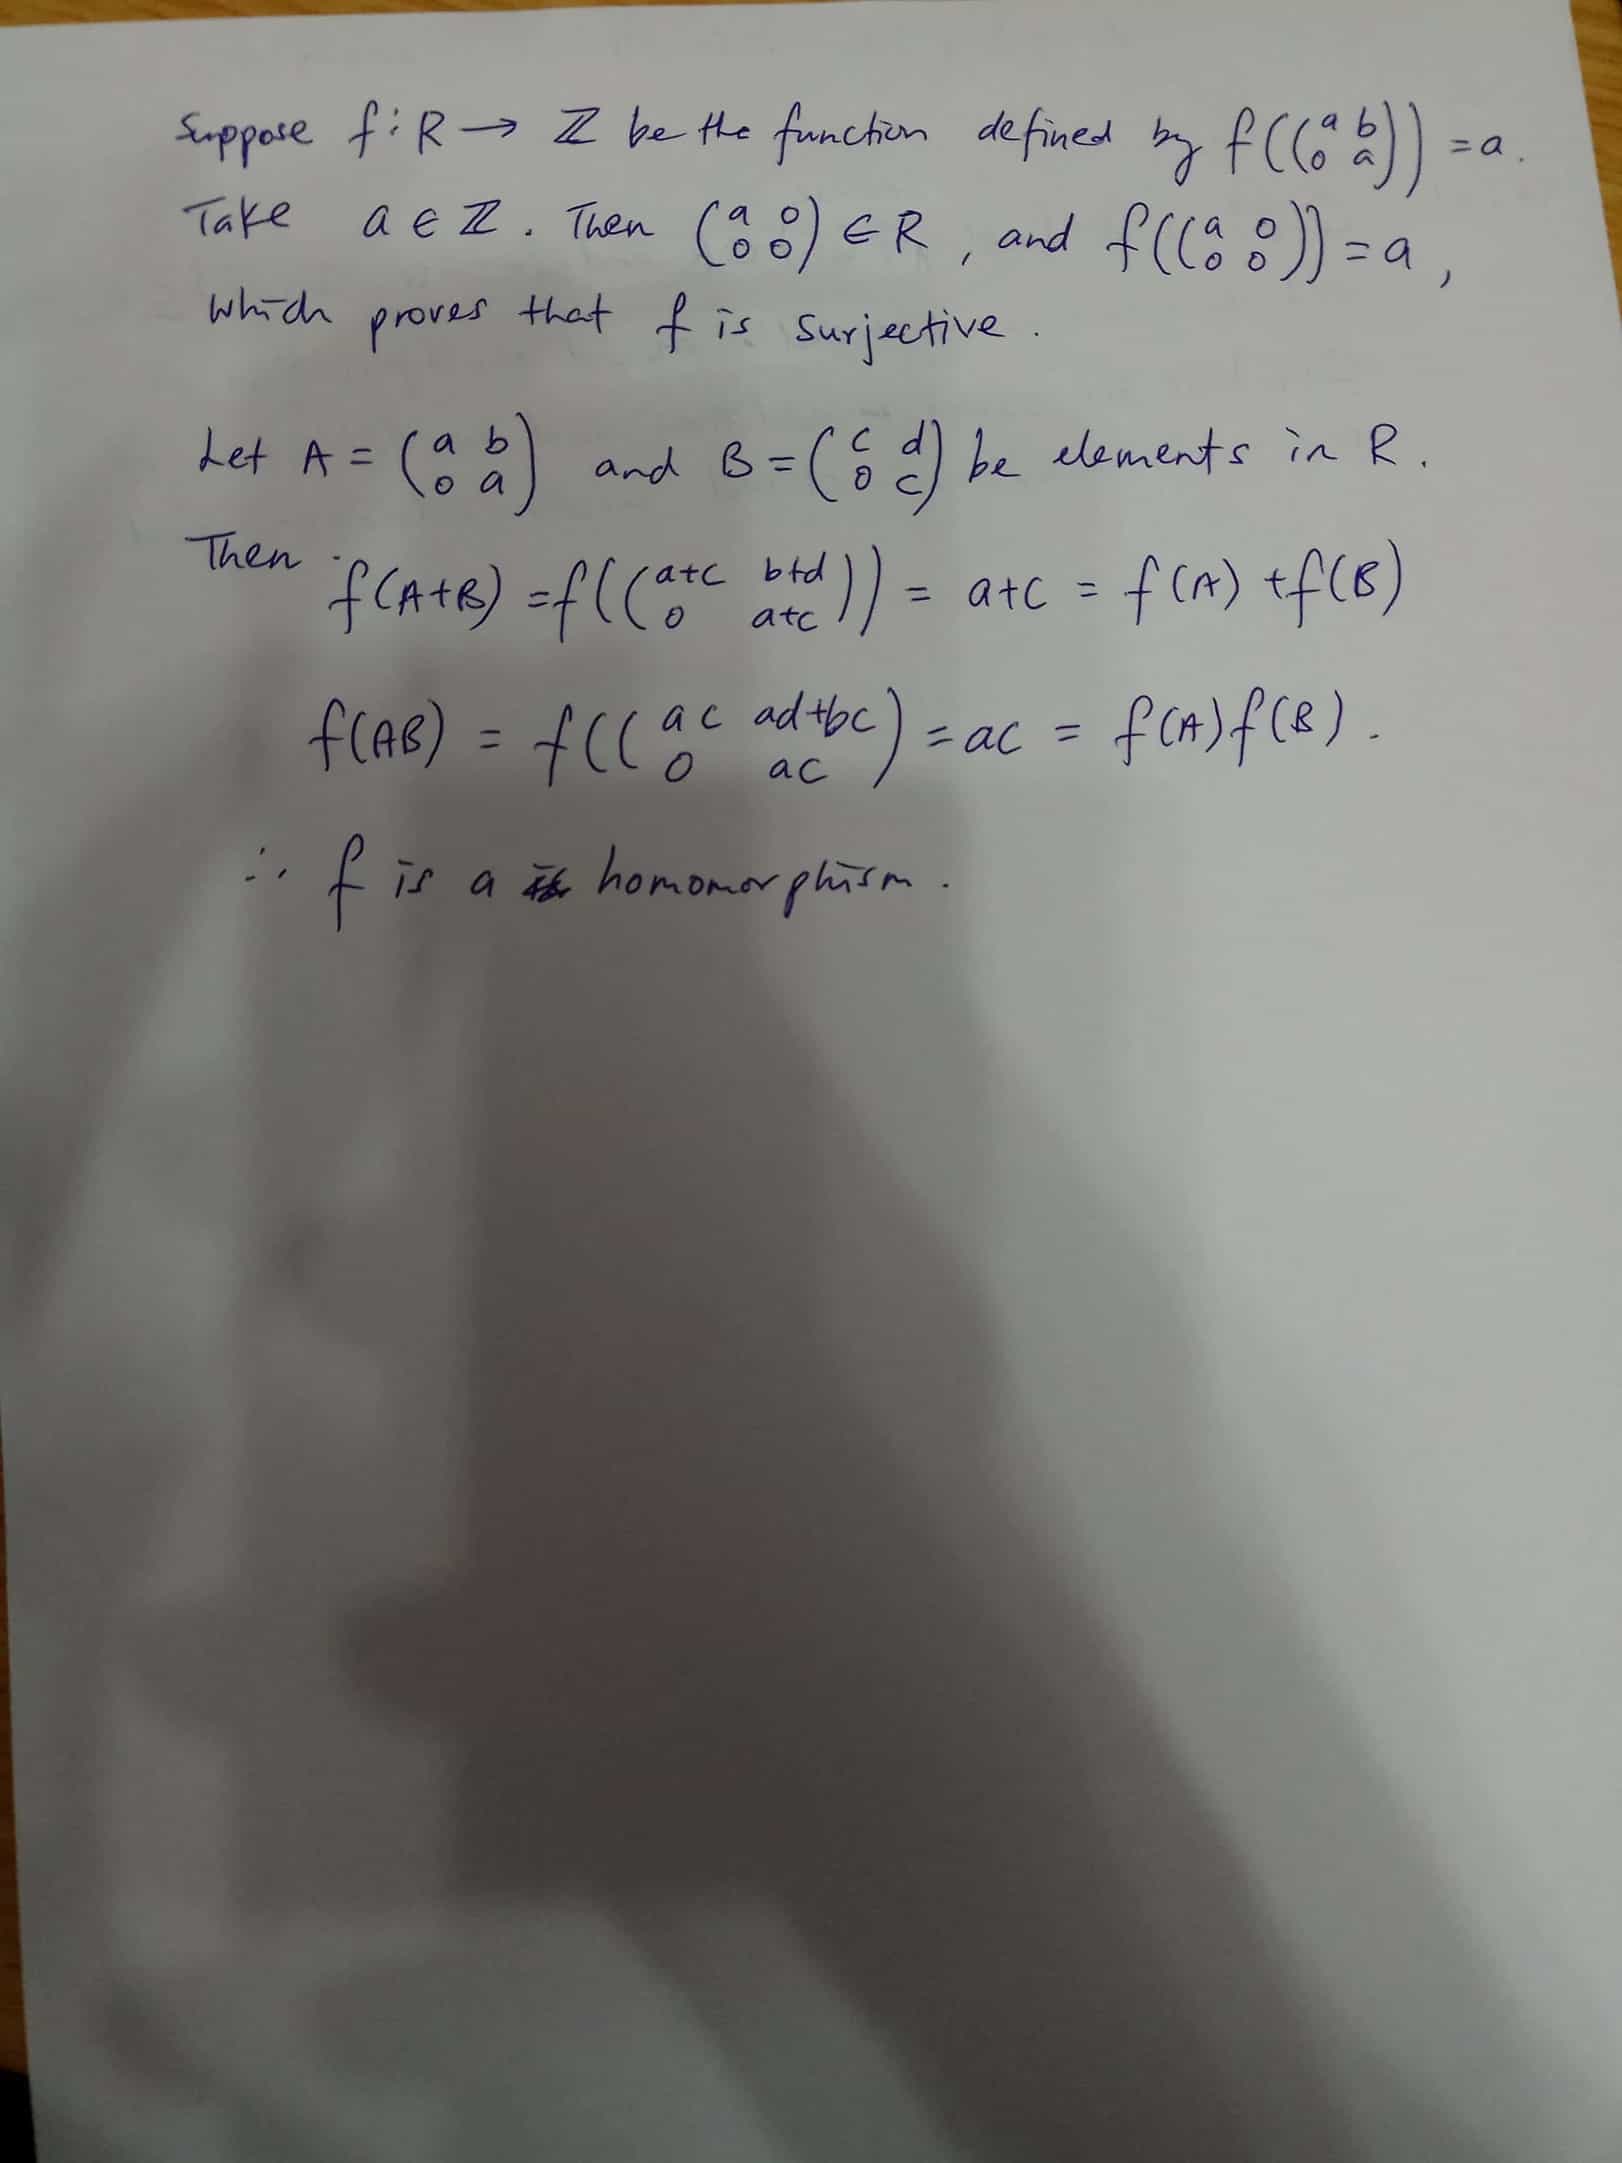 Suppose f: R → ℤ be the function defined by f((a b; 0 a)) = a.
Take a ∈ ℤ. Then (a 0; 0 0) ∈ R, and f((a 0; 0 0)) = a,
which proves that f is surjective.
Let A = (a b; 0 a) and B = (c d; 0 c) be elements in R.
Then f(A+B) = f((a+c b+d; 0 a+c)) = a+c = f(A) + f(B)
f(AB) = f((ac ad+bc; 0 ac) = ac = f(A)f(B).
∴ f is a homomorphism.